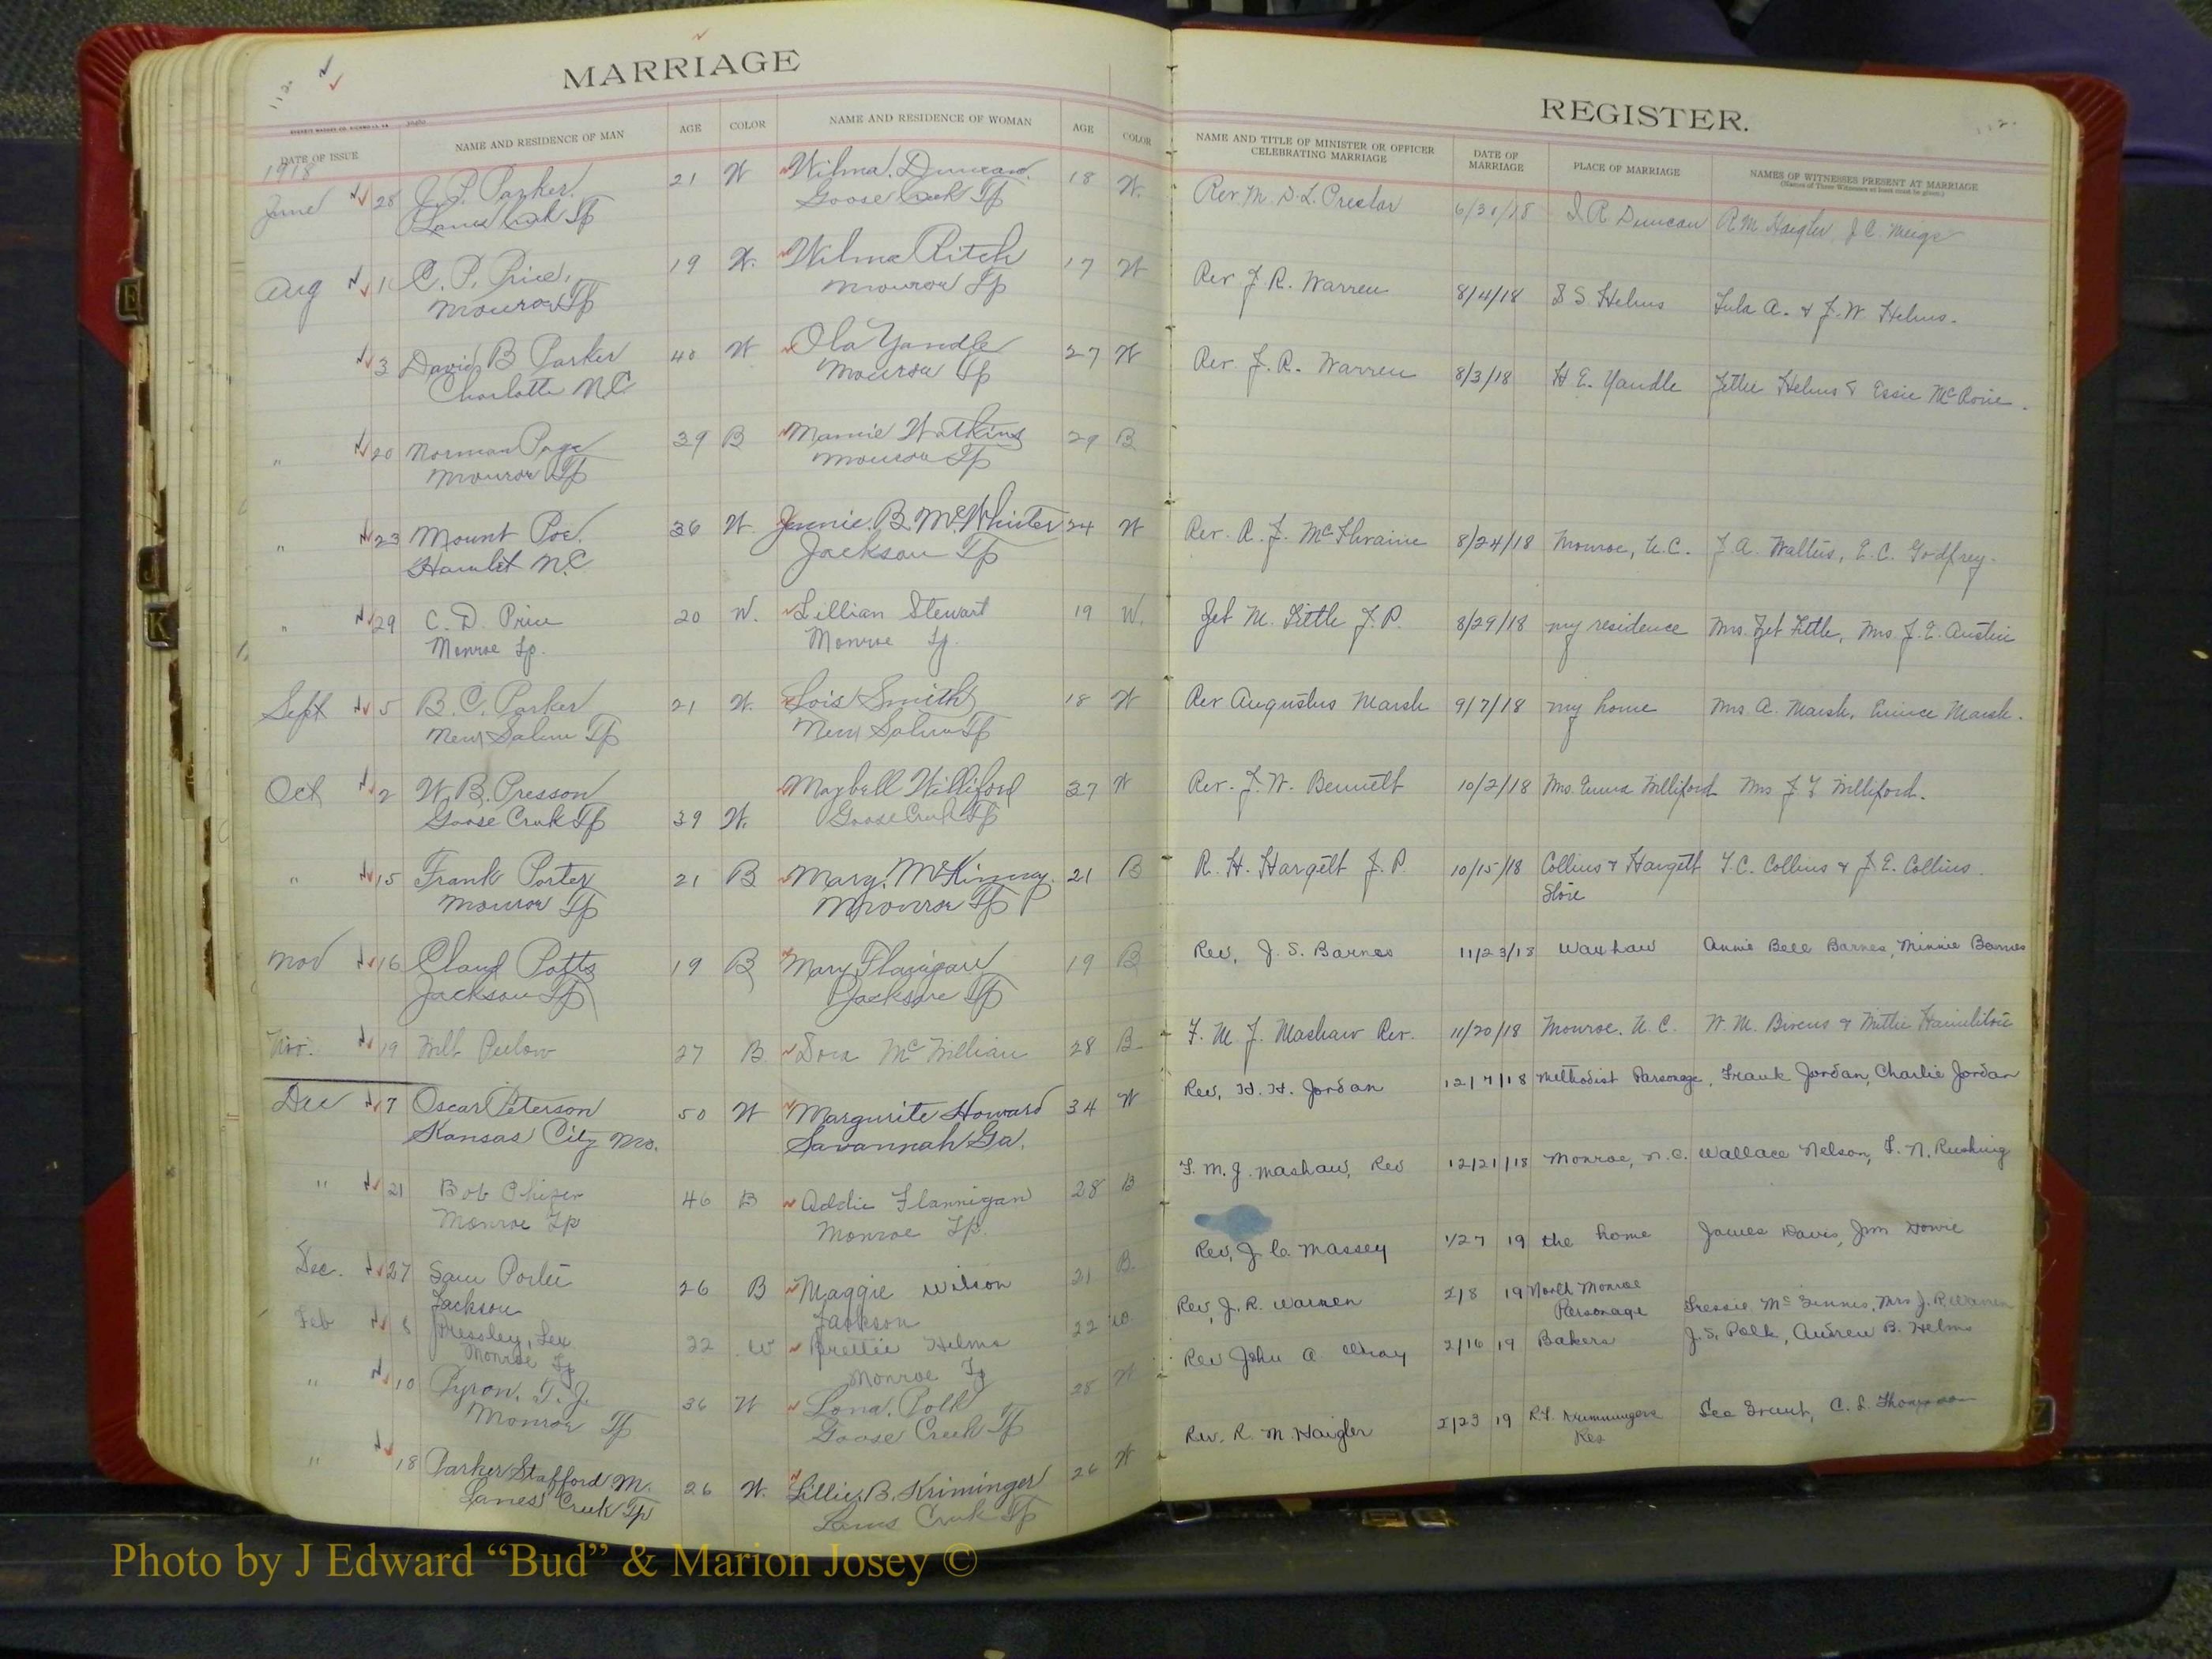 MARRIAGE
112
DATE OF ISSUE NAME AND RESIDENCE OF MAN AGE COLOR NAME AND RESIDENCE OF WOMAN AGE COLOR
1918
June 28 J. P. Parker 21 W Wilma Duncan 18 W.
Lanes Creek Tp Goose Creek Tp
Aug 1 C. P. Price, 19 W. Wilma Ritch 17 W
Monroe Tp Monroe Tp
3 David B Parker 40 W Ola Yandle 27 W
Charlotte N.C. Monroe Tp
" 20 Norman Page 39 B Mamie Watkins 29 B
Monroe Tp Monroe Tp
" 23 Mount Poe. 36 W. Jennie B. McWhirter 24 W
Hamlet N.C. Jackson Tp
" 29 C. D. Price 20 W. Lillian Stewart 19 W.
Monroe Tp. Monroe Tp.
Sept 5 B. C. Parker 21 W. Lois Smith 18 W
New Salem Tp New Salem Tp
Oct 2 W. B. Presson Maybell Williford 37 W
Goose Creek Tp 39 W. Goose Creek Tp
" 15 Frank Porter 21 B Mary McKinney. 21 B
Monroe Tp Monroe Tp
Nov 16 Claud Potts 19 B Mary Flanigan 19 B
Jackson Tp Jackson Tp
Nov. 19 Will 27 B. Dora McMillian 28 B
Dec 7 Oscar Peterson 50 W Margurite Howard 34 W
Kansas City Mo. Savannah Ga.
" 21 Bob 46 B Addie Flannigan 28 B
Monroe Tp Monroe Tp.
Dec. 27 Sam Porter 26 B Maggie Wilson 21 B
Jackson Jackson
Feb 8 Pressley, Lex 22 W Brettie Helms 22 W
Monroe Tp Monroe Tp
" 10 Pyron, T. J. 36 W Lona Polk 25 W
Monroe Tp Goose Creek Tp
" 18 Parker Stafford M. 26 W. Lillie B. Kriminger 26 W
Lanes Creek Tp Lanes Creek Tp
REGISTER.
112
NAME AND TITLE OF MINISTER OR OFFICER CELEBRATING MARRIAGE DATE OF MARRIAGE PLACE OF MARRIAGE NAMES OF WITNESSES PRESENT AT MARRIAGE
(Names of Three Witnesses at least must be given.)
Rev. M. D. L. 6/30/18 I R Duncan R M. Haigler J. C.
Rev J. R. Warren 8/4/18 S S Helms Lula A. & J. W Helms.
Rev. J. R. Warren 8/3/18 H E. Yandle Helms & Essie McRorie.
Rev. R. J. McIlwaine 8/24/18 Monroe, N.C. J. A. Walters, E. C. Godfrey.
Zeb M. Little J. P. 8/29/18 my residence Mrs. Zeb Little, Mrs. J. E. Austin
Rev Augustus Marsh 9/7/18 my home Mrs A. Marsh, Eunice Marsh.
Rev. J. W. Bennett 10/2/18 Mrs. Emma Williford Mrs J. Y Williford.
R. H. Hargett J. P. 10/15/18 Collins & Hargett T. C. Collins & J. E. Collins.
Store
Rev, J. S. Barnes 11/23/18 Waxhaw Annie Bell Barnes, Minnie Barnes
F. M. J. Mashaw Rev. 11/20/18 Monroe. N C. W. M. Bivens & Mittie Hamilton
Rev, H. H. Jordan 12/7/18 Methodist Parsonage, Frank Jordan, Charlie Jordan
F. M. J. Mashaw, Rev 12/21/18 Monroe, N.C. Wallace Nelson, F. N. Rushing
Rev, J. C. Massey 1/27 19 the home James Davis, Jim Howie
Rev, J. R. Warren 2/8 19 North Monroe
Parsonage Mrs J. R. Warren
Rev John A Wray 2/16 19 Bakers J. S. Polk, Andrew B. Helms
Rev. R. M. Haigler 2/23 19 Lee Grant, C. L. Thompson
Res
Photo by J Edward “Bud” & Marion Josey ©